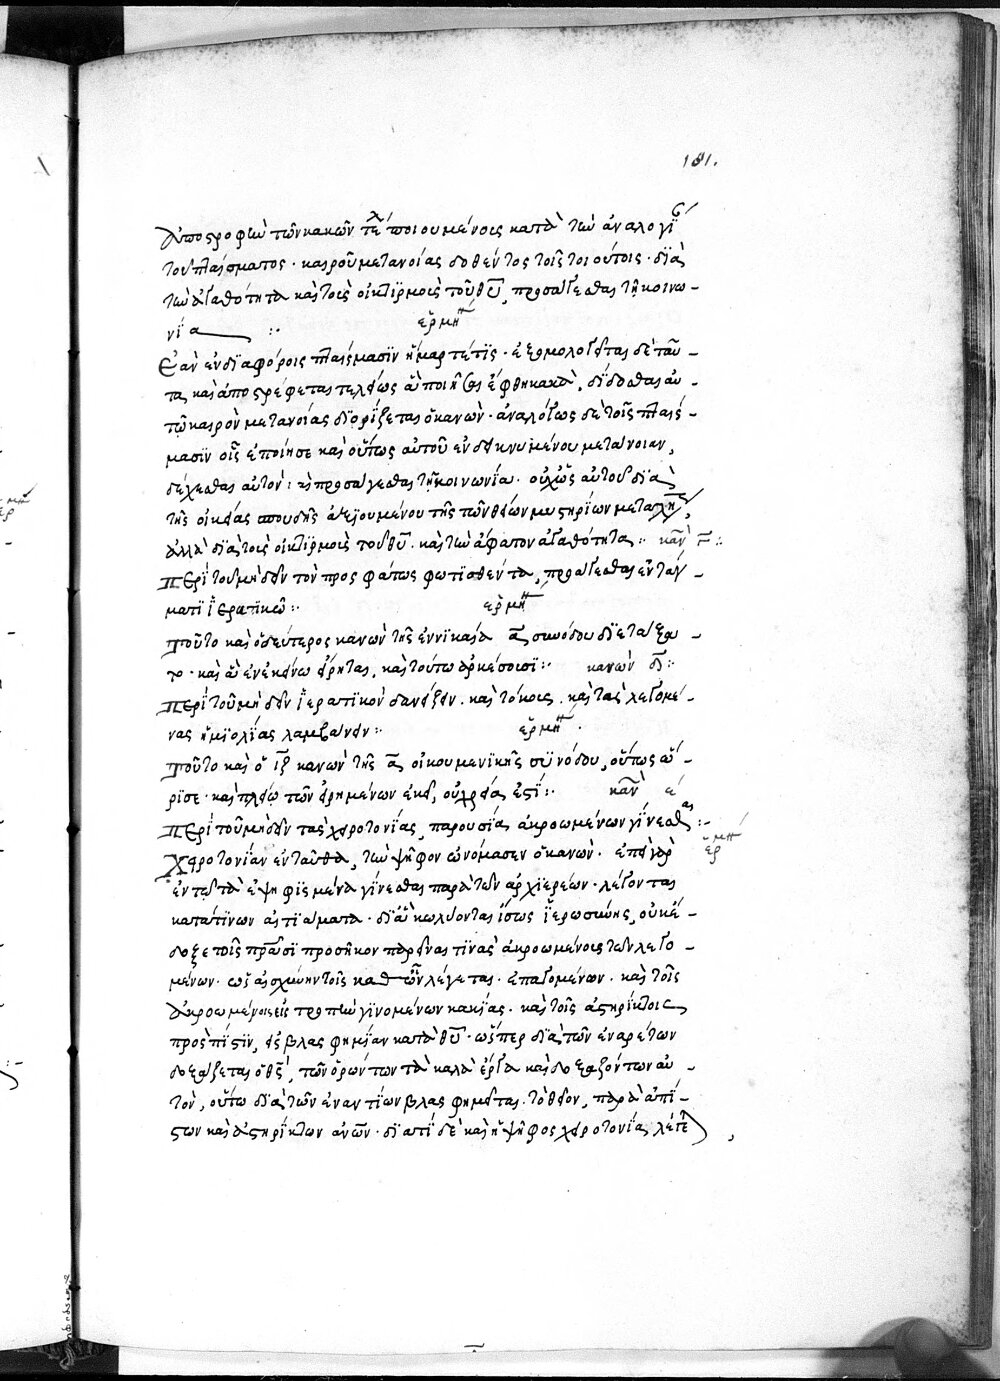 181.
ἀποστροφὴν τῶν κακῶν τελ ποιουμένοις κατὰ τὴν ἀναλογί
τοῦ πταίσματος · καιροῦ μετανοίας δοθέντος τοῖς τοιούτοις · διὰ
τὴν ἀγαθότητα καὶ τοὺς οἰκτιρμοὺς τοῦ θυ, προσάγεσθαι τῇ κοινω-
νία :· ἑρμη
Ἐὰν ἐν διαφόροις πταίσμασιν ἥμαρτέ τις · ἐξομολογεῖται δὲ ταῦ-
τα, καὶ ἀποστρέφεται τελείως ἃ ποιῆσαι ἔφθη κακὰ, δίδοσθαι αὐ-
τῷ καιρὸν μετανοίας διορίζεται ὁ κανὼν · ἀναλόγως δὲ τοῖς πταίσ-
μασιν οἷς ἐποίησε καὶ οὕτως αὐτοῦ ἐνδεικνυμένου μετάνοιαν,
δέχεσθαι αὐτὸν · καὶ προσάγεσθαι τῇ κοινωνία · οὐχ ὡς αὐτοῦ διὰ
τῆς οἰκείας σπουδῆς ἀξιουμένου τῆς τῶν θείων μυστηρίων μεταλή,
ἀλλὰ διὰ τοὺς οἰκτιρμοὺς τοῦ θυ · καὶ τὴν ἄφατον ἀγαθότητα :· κανὼ γ :·
Περὶ τοῦ μὴ δεῖν τὸν προσφάτως φωτισθέντα, προσάγεσθαι ἐν τάγ-
ματι ἱερατικῶ :· ἑρμη
τοῦτο καὶ ὁ δεύτερος κανὼν τῆς ἐν νικαία α συνόδου διετάξα-
το · καὶ ἃ ἐν ἐκείνω εἴρηται, καὶ τούτω ἀρκέσουσι :· κανὼν δ :·
Περὶ τοῦ μὴ δεῖν ἱερατικοὺ δανείζειν · καὶ τόκους · καὶ τὰς λεγομέ-
νας ἡμιολίας λαμβάνειν :· ἑρμη ·
τοῦτο καὶ ὁ ιζ κανὼν τῆς α οἰκουμενικῆς συνόδου, οὕτως ὥ-
ρισε · καὶ πλείω τῶν εἰρημένων ἐκεῖ, οὐ χρεία ἐστί :· κανὼ ε
Περὶ τοῦ μὴ δεῖν τὰς χειροτονίας, παρουσία ἀκροωμένων γίνεσθαι :·
Χειροτονίαν ἐνταῦθα, τὴν ψῆφον ὠνόμασεν ὁ κανὼν · ἐπεὶ γὰρ ἑρμη
ἐν τῶ τὰ ἐψηφισμένα γίνεσθαι παρὰ τῶν ἀρχιερέων · λέγονται
κατὰ τινων αἰτιάματα · δι᾽ ἃ κωλύονται ἴσως ἱερωσύνης, οὐκ ἔ-
δοξε τοῖς πράσι προσῆκον παρεῖναι τινὰς ἀκροωμένους τῶν λεγο-
μένων · ὡς αἰσχύνην τοῖς καθ ὧν λέγεται · ἐπαγομένων · καὶ τοῖς
ἀκροωμένοις εἰς προτροπὴν γινομένων κακίας · καὶ τοῖς ἀστηρίκτοις
πρὸς πίστιν, εἰς βλασφημίαν κατὰ θυ · ὥσπερ διὰ τῶν ἐναρέτων
δοξάζεται ὁ θς, τῶν ὁρώντων τὰ καλὰ ἔργα καὶ δοξαζόντων αὐ-
τὸν, οὕτω διὰ τῶν ἐναντίων βλασφημεῖται τὸ θεῖον, παρὰ ἀπί-
στων καὶ ἀστηρίκτων ἀνων · διατί δὲ καὶ ἡ ψῆφος χειροτονία λέγε,